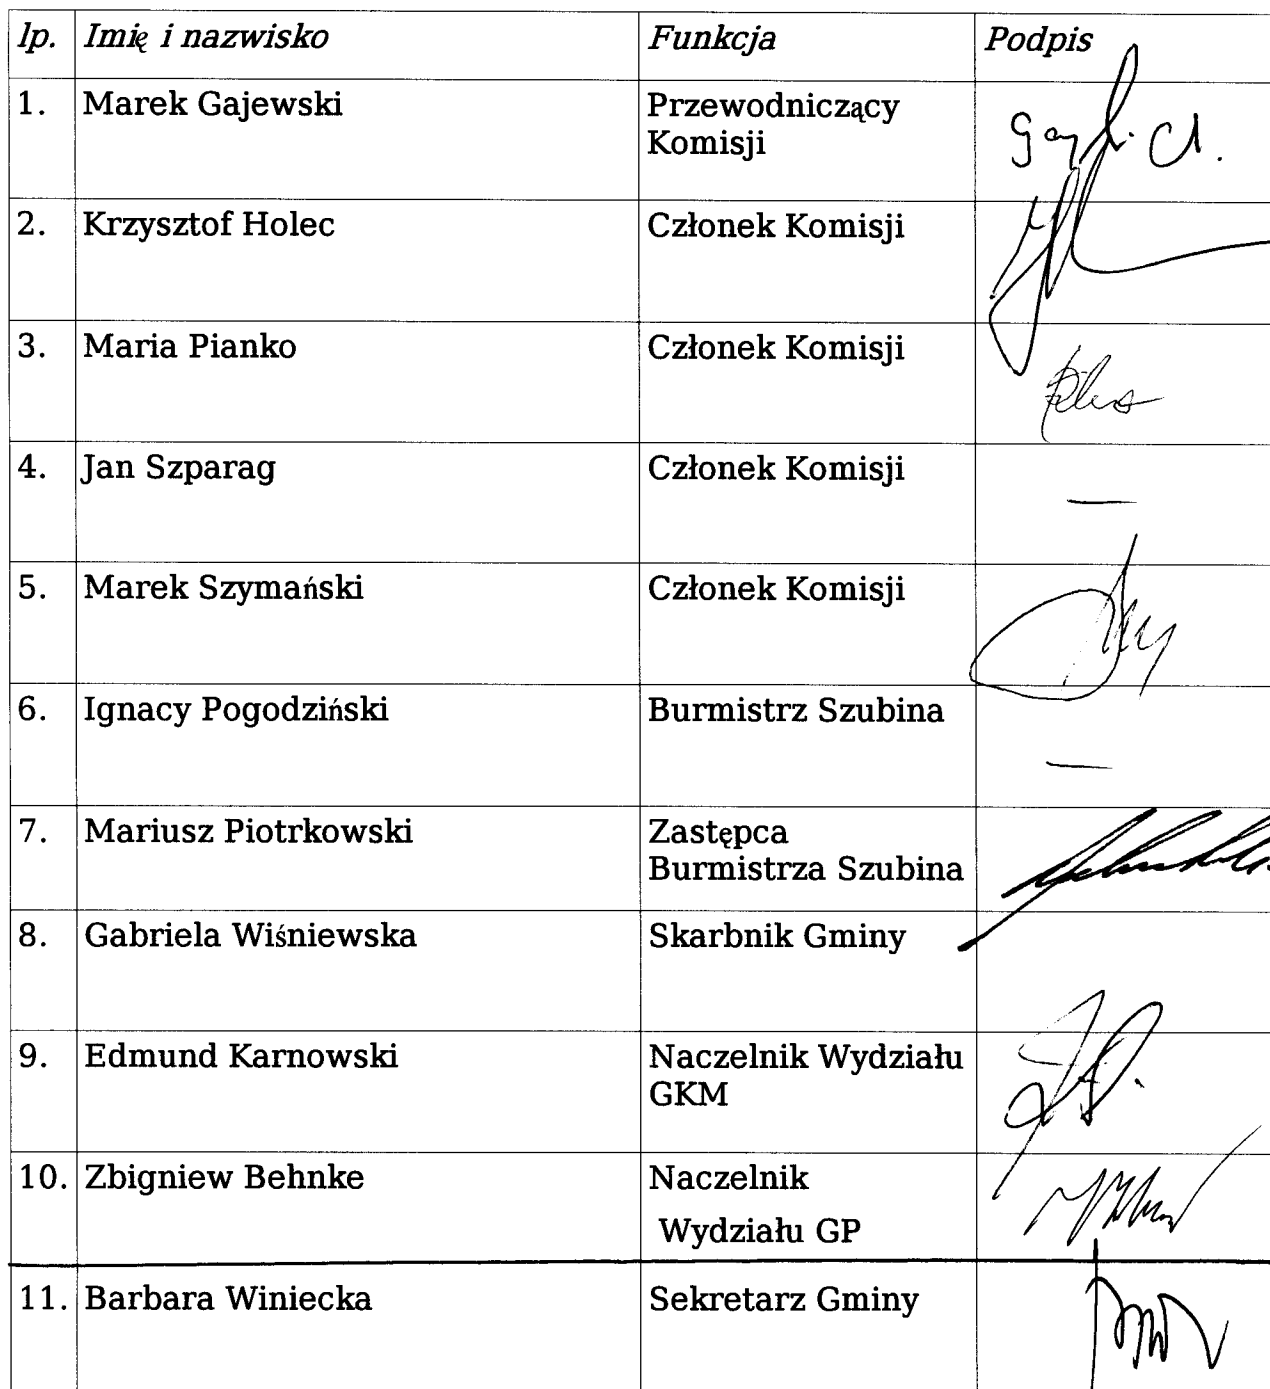 lp. Imię i nazwisko Funkcja Podpis
1. Marek Gajewski Przewodniczący
Komisji
2. Krzysztof Holec Członek Komisji
3. Maria Pianko Członek Komisji
4. Jan Szparag Członek Komisji
—
5. Marek Szymański Członek Komisji
6. Ignacy Pogodziński Burmistrz Szubina
—
7. Mariusz Piotrkowski Zastępca
Burmistrza Szubina
8. Gabriela Wiśniewska Skarbnik Gminy
9. Edmund Karnowski Naczelnik Wydziału
GKM
10. Zbigniew Behnke Naczelnik
Wydziału GP
11. Barbara Winiecka Sekretarz Gminy